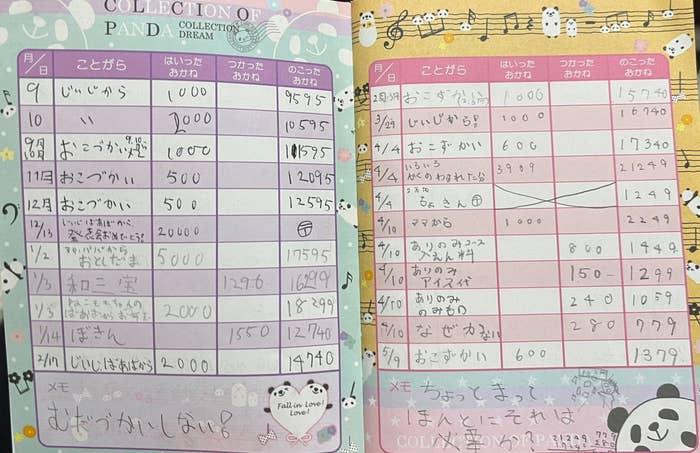 COLLECTION OF
PANDA COLLECTION
DREAM
月/日 ことがら はいったおかね つかったおかね のこったおかね
9 じいじから 1000 9595
10 〃 2000 10595
おこづかい 1000 11595
11月 おこづかい 500 12095
12月 おこづかい 500 12595
12/13 じいじばあばから、 20000 〒
1/2 パパから
おとしだま 5000 17595
1/3 和三宝 1296 16299
1/3 2000 18299
1/14 ぼきん 1550 12740
2/17 じいじばあばから 2000 14740
メモ
むだづかいしない!
Fall in Love!
Love!
月/日 ことがら はいったおかね つかったおかね のこったおかね
おこずかい 1000 15740
3/29 じいじから! 1000 16740
4/4 おこずかい 600 17340
4/4 いろいろ
かくのわすれたらん 3909 21249
4/9 ちょきん 〒 1249
4/10 ママから 1000 2249
4/10 ありのみコース
入えん料 800 1449
4/10 ありのみ
アイス代 150- 1299
4/10 ありのみ
のみもの 240 1059
4/10 なぜか ない 280 779
5/9 おこずかい 600 1379
メモ ちょっとまって
ほんとにそれは
必要か?
COLLECTION OF PANDA